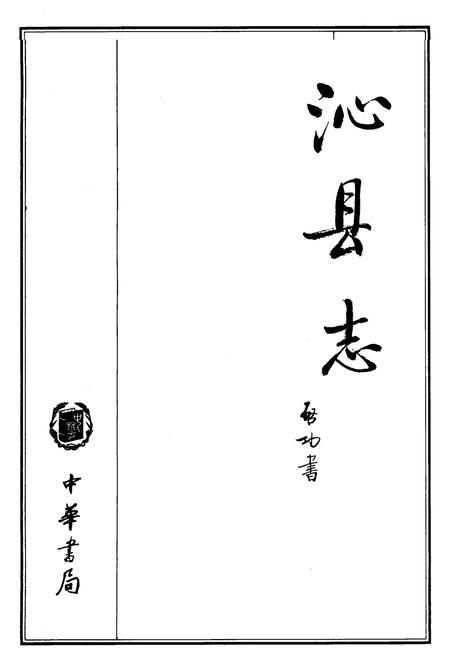 沁县志
启功书
中华书局